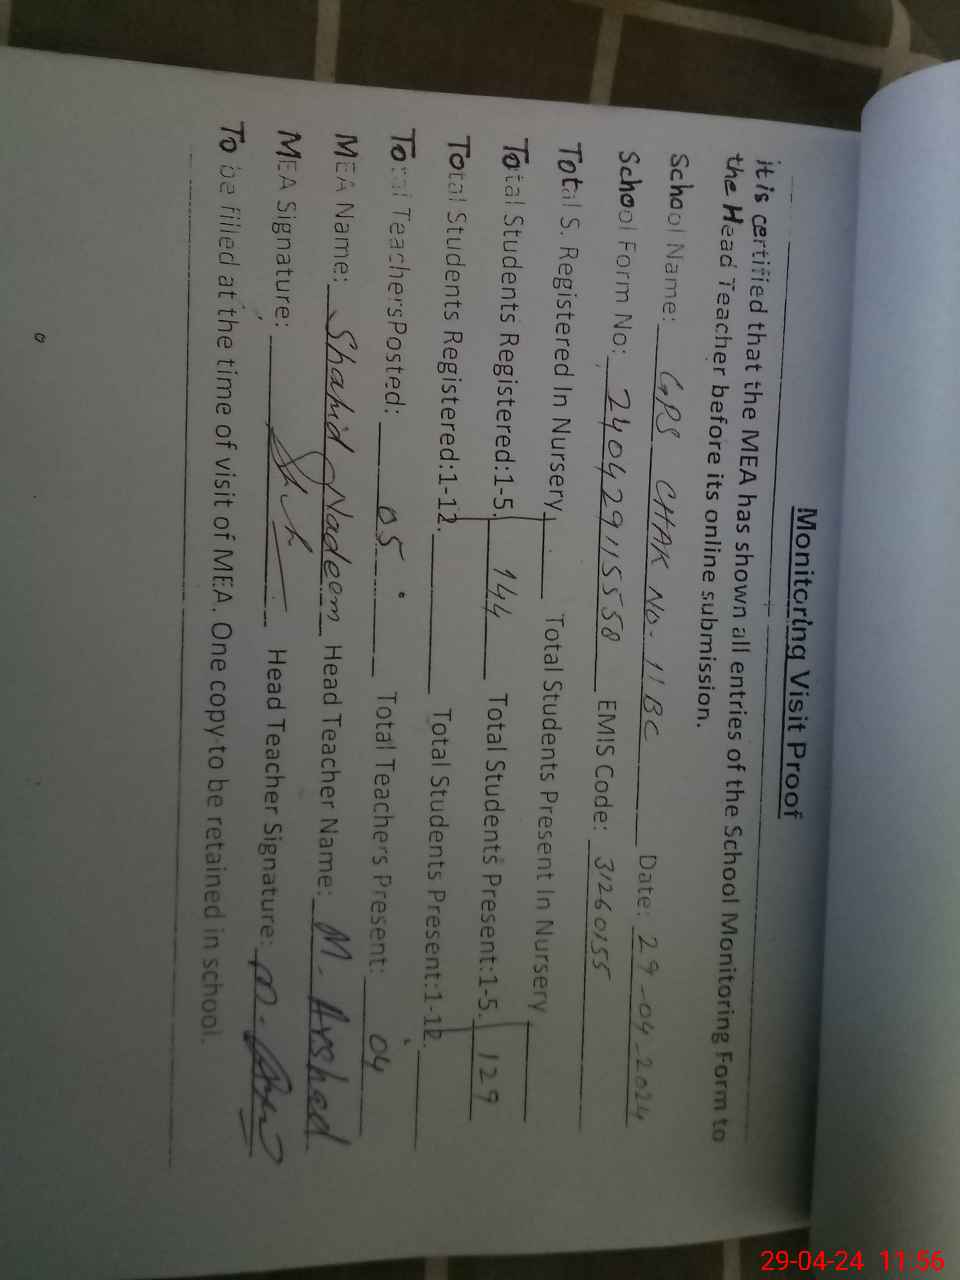 Monitoring Visit Proof
it is certified that the MEA has shown all entries of the School Monitoring Form to
the Head Teacher before its online submission.
School Name: GPS CHAK No. 11 BC Date: 29-04-2024
School Form No: 24042911558 EMIS Code: 31260155
Total S. Registered In Nursery Total Students Present In Nursery
Total Students Registered:1-5. 144 Total Students Present:1-5. 129
Total Students Registered:1-12. Total Students Present:1-12.
Total TeachersPosted: 05 Total Teachers Present: 04
MEA Name: Shahid Nadeem Head Teacher Name: M. Arshad
MEA Signature: Head Teacher Signature:
To be filled at the time of visit of MEA. One copy to be retained in school.
29-04-24 11:56